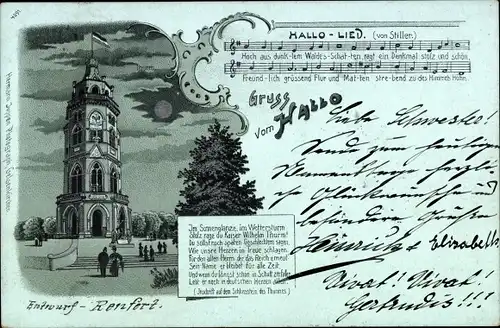 HALLO - LIED. (von Stiller.)
Hoch aus dunk-lem Waldes-Schat-ten ragt ein Denkmal stolz und schön
Freund-lich grüssend Flur und Mat-ten stre-bend zu des Himmels Höhn.
Gruss
vom HALLO
Liebe Schwester!
Sende zum heutigen
Namenstage herzli-
che Glückwünsche und
besondere Grüße
Heinrich & Elisabeth
Vivat! Vivat!
Gertrudis!!!
Im Sonnenglanze, im Wettersturm
Stolz rage du Kaiser Wilhelm Thurm!
Du sollst noch späten Geschlechtern sagen,
Wie unsre Herzen in Treue schlagen
Für den alten Herrn, der das Reich erneut
Sein Name erklebt für alle Zeit.
Und wenn du längst schon in Schutt zerfallen
Lebt er noch in deutschen Herzen allen.
(Inschrift auf den Schlussstein des Thurmes.)
Entwurf - Renfert.